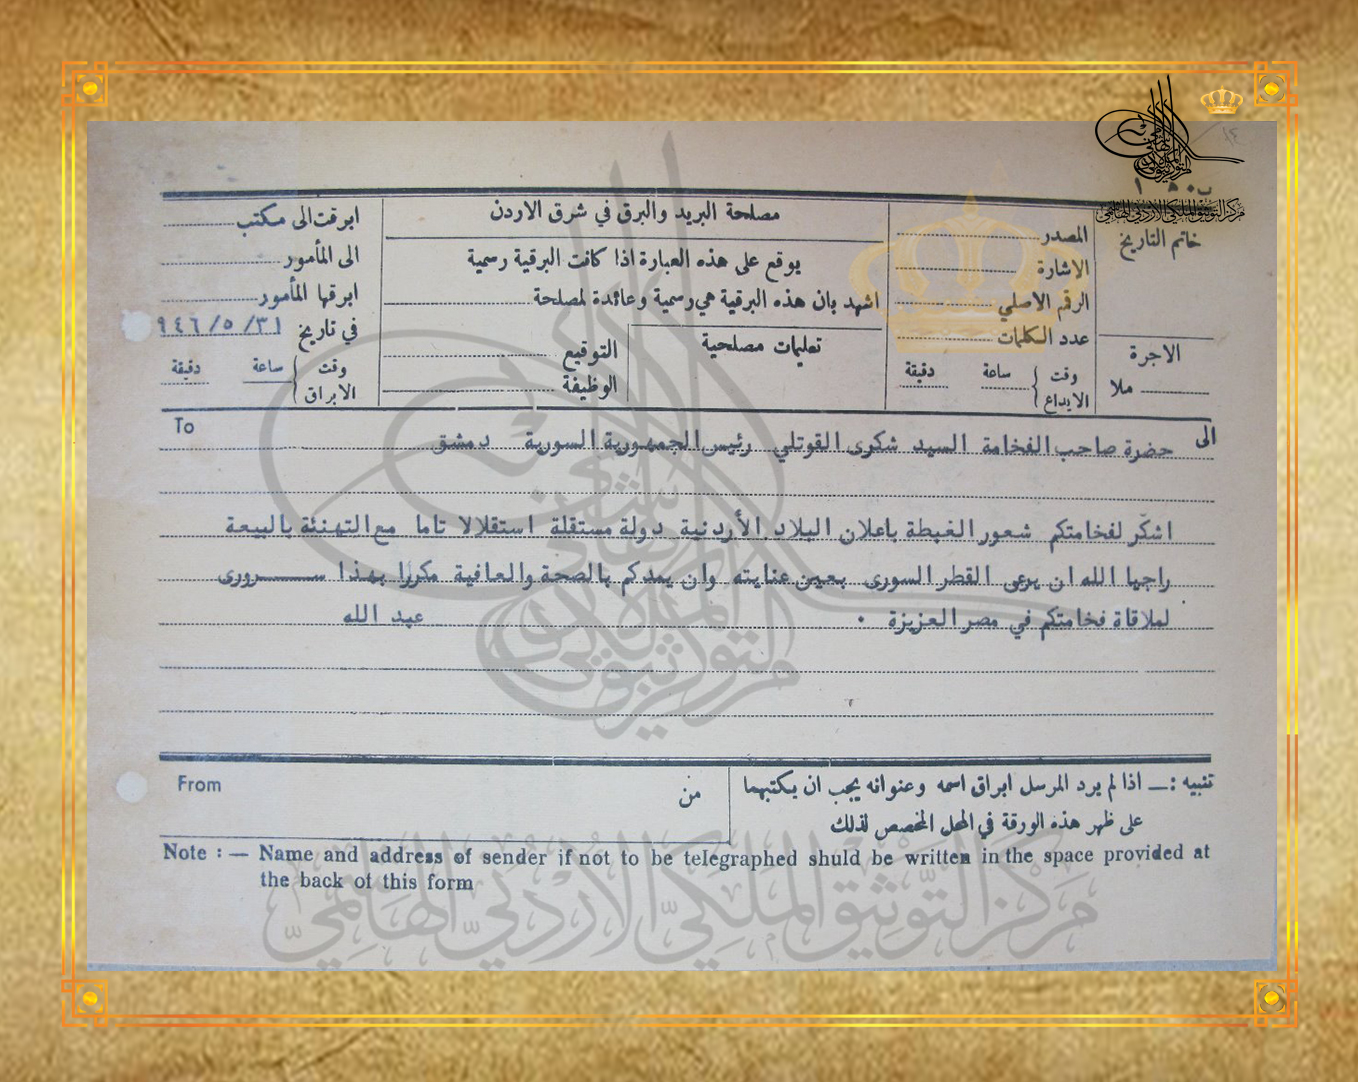 مركز التوثيق الملكي الاردني الهاشمي
خاتم التاريخ
الاجرة
ملا
المصدر
الاشارة
الرقم الاصلي
عدد الكلمات
وقت الايداع
ساعة
دقيقة
مصلحة البريد والبرق في شرق الاردن
يوقع على هذه العبارة اذا كانت البرقية رسمية
اشهد بان هذه البرقية هي رسمية وعائدة لمصلحة
تعليمات مصلحية
التوقيع
الوظيفة
ابرقت الى مكتب
الى المأمور
ابرقها المأمور
في تاريخ ٣١/ ٥/ ٩٤٦
وقت الابراق
ساعة
دقيقة
To
الى
حضرة صاحب الفخامة السيد شكرى القوتلي رئيس الجمهورية السورية دمشق
اشكر لفخامتكم شعور الغبطة باعلان البلاد الأردنية دولة مستقلة استقلالا تاما مع التهنئة بالبيعة
راجيا الله ان يرعى القطر السورى بعين عنايته وان يمدكم بالصحة والعافية مكررا بهذا ســـرورى
لملاقاة فخامتكم في مصر العزيزة ٠ عبد الله
تنبيه :ـ اذا لم يرد المرسل ابراق اسمه وعنوانه يجب ان يكتبهما
على ظهر هذه الورقة في المحل المخصص لذلك
من
From
Note :— Name and address of sender if not to be telegraphed shuld be written in the space provided at
the back of this form
مركز التوثيق الملكي الاردني الهاشمي